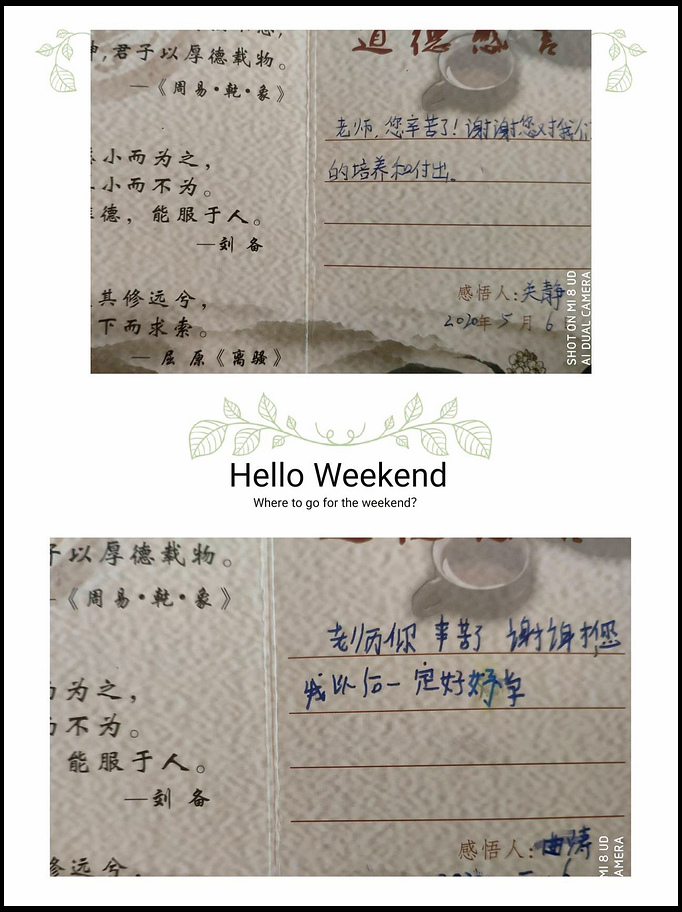 君子以厚德载物。
—《周易·乾·象》
小而为之，
小而不为。
德，能服于人。
—刘备
其修远兮，
下而求索。
— 屈原《离骚》
道德感言
老师，您辛苦了！谢谢您对我们
的培养和付出。
感悟人：关静
2020年5月6
SHOT ON MI 8 UD
AI DUAL CAMERA
Hello Weekend
Where to go for the weekend?
子以厚德载物。
《周易·乾·象》
为之，
不为。
能服于人。
—刘备
修远兮，
老师你 辛苦了 谢谢您
我以后一定好好学
感悟人：曲涛
MI 8 UD
AMERA